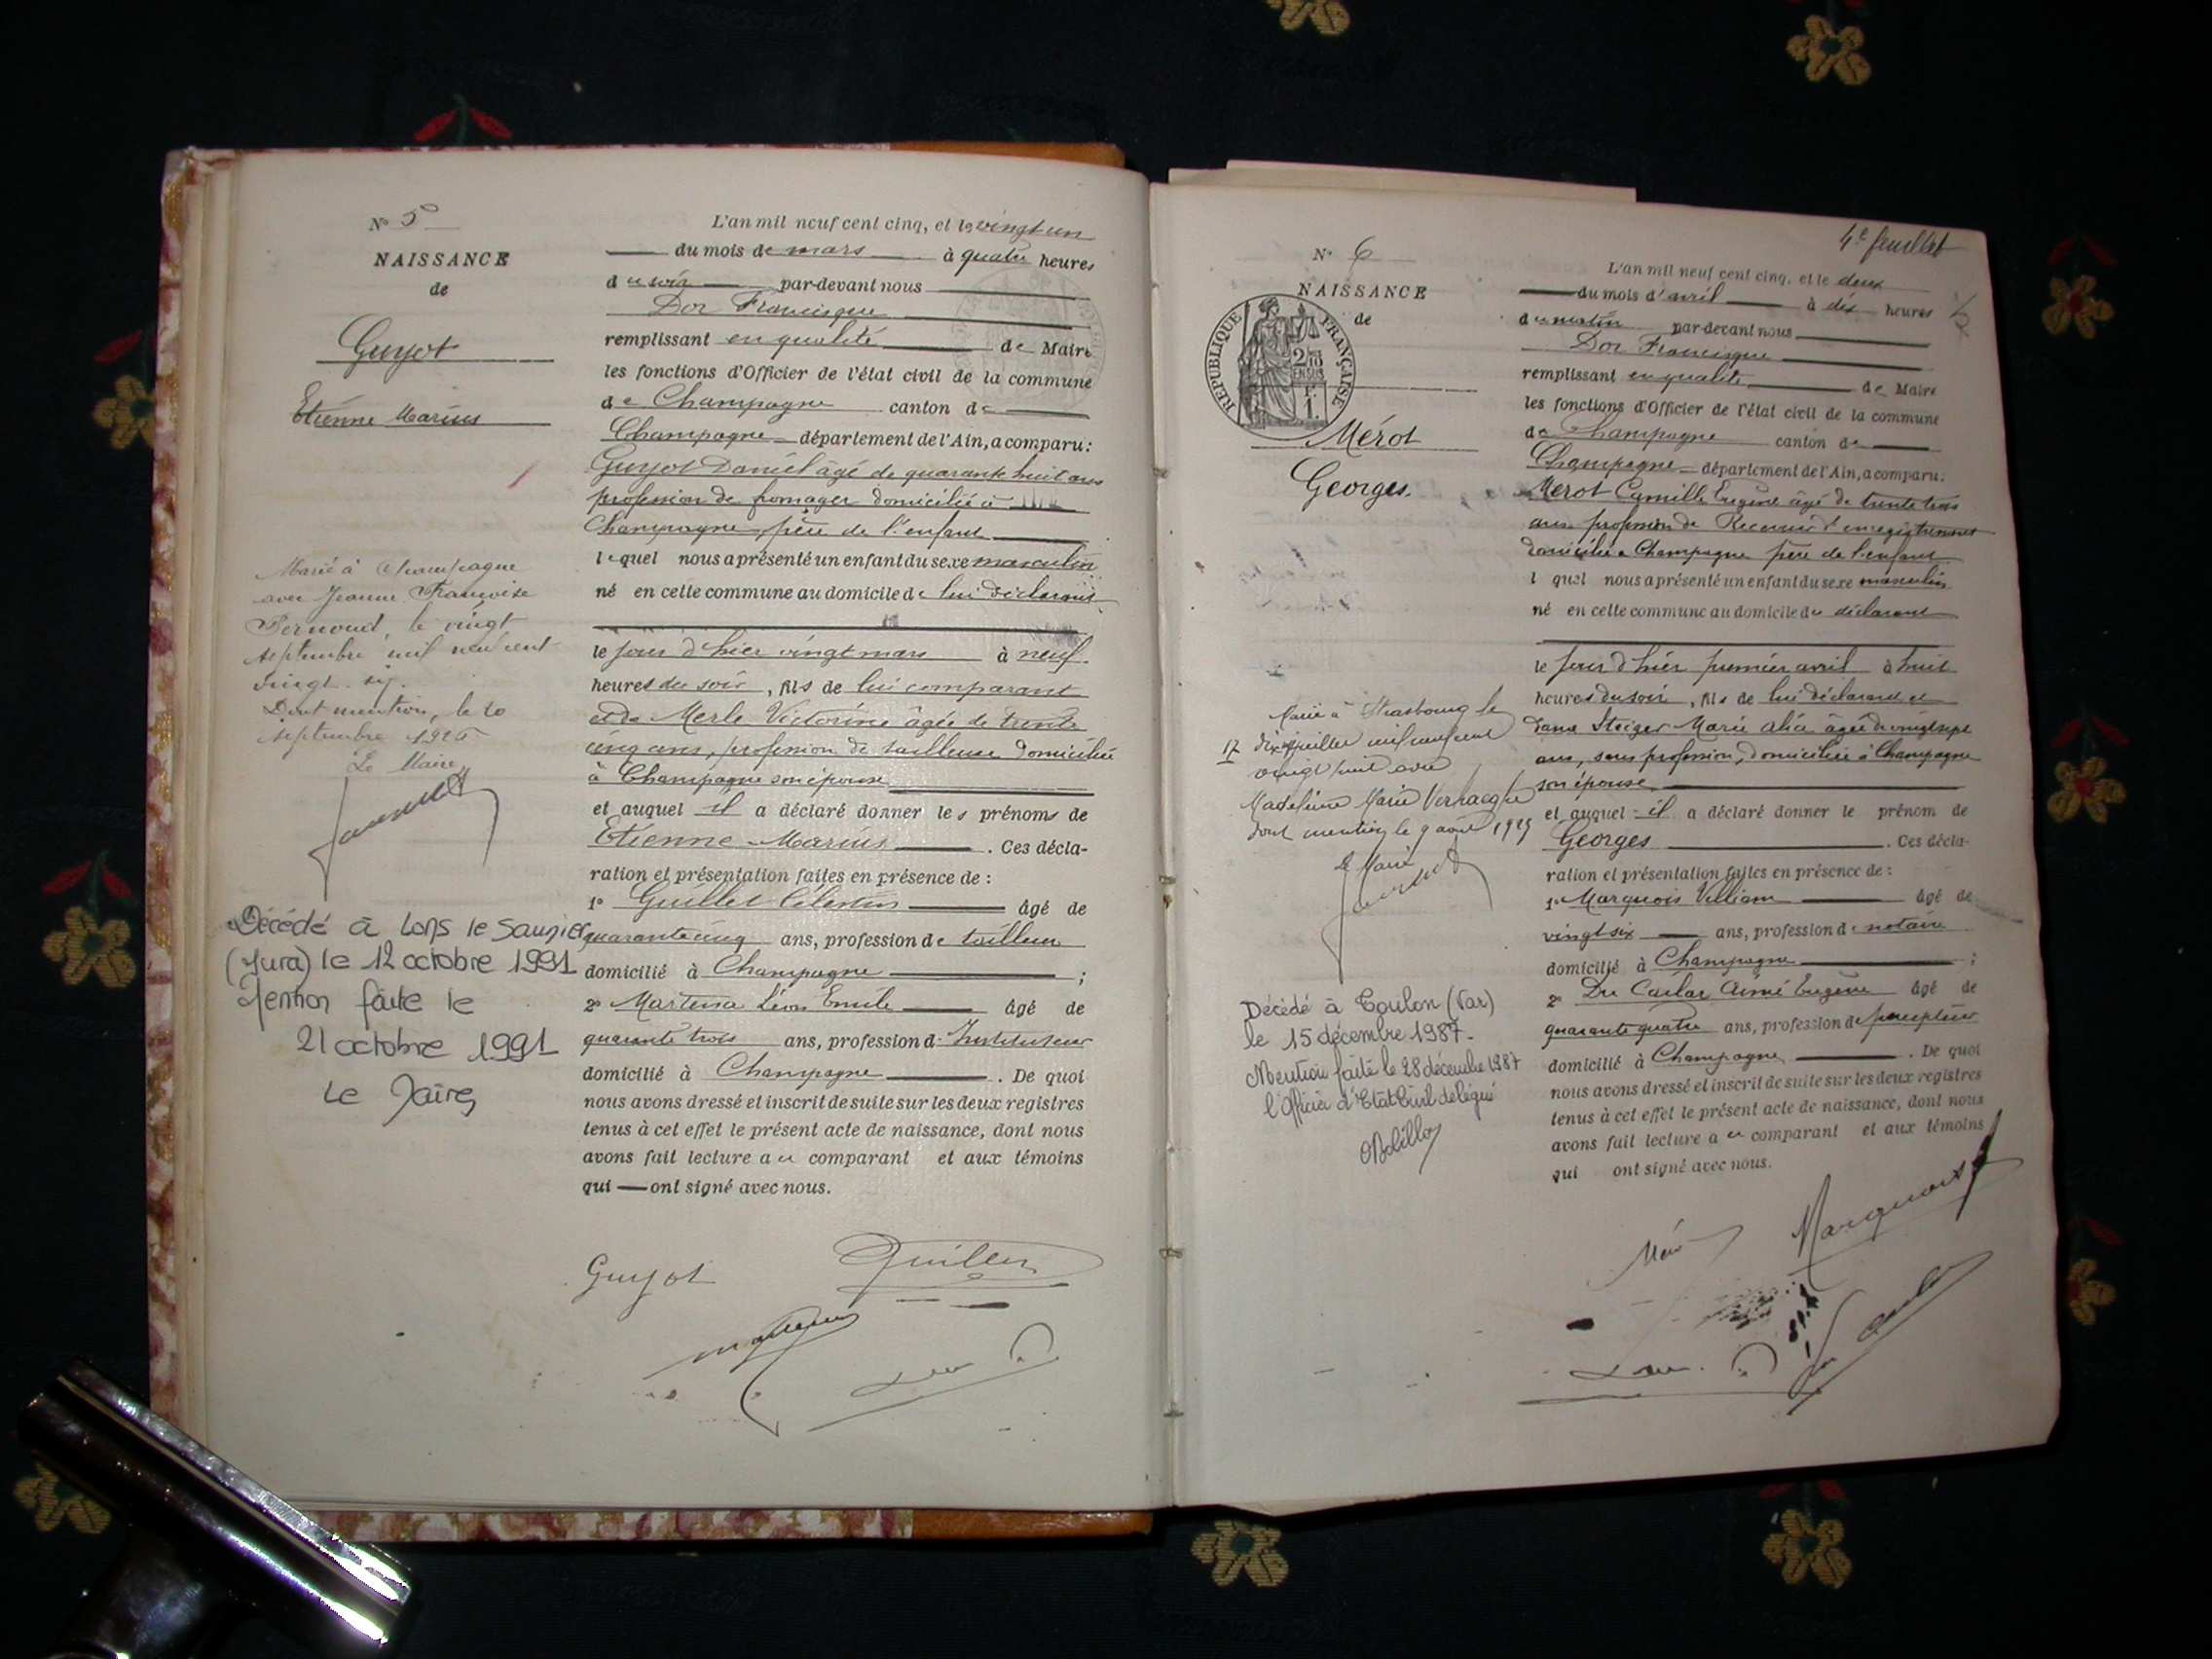 N° 5
NAISSANCE
de
Guyot
Etienne Marius
Marié à Champagne
avec Jeanne Françoise
Pernoud, le vingt
septembre mil neuf cent
vingt six.
Dont mention, le 20
septembre 1926
Le Maire
Décédé à Lons le Saunier
(Jura) le 12 octobre 1991
Mention faite le
21 octobre 1991
Le Maire,
L'an mil neuf cent cinq, et le vingt un
du mois de mars à quatre heures
du soir par-devant nous
Dor Francisque
remplissant en qualité de Maire
les fonctions d'Officier de l'état civil de la commune
de Champagne canton de
Champagne département de l'Ain, a comparu:
Guyot Daniel âgé de quarante huit ans
profession de fromager domicilié à
Champagne, père de l'enfant
lequel nous a présenté un enfant du sexe masculin
né en cette commune au domicile de lui déclarant
le jour d'hier vingt mars à neuf
heures du soir, fils de lui comparant
et de Merle Victorine âgée de trente
cinq ans, profession de tailleuse domiciliée
à Champagne son épouse
et auquel il a déclaré donner les prénoms de
Etienne Marius. Ces décla-
ration et présentation faites en présence de :
1° Guillet Célestin âgé de
quarante cinq ans, profession de tailleur
domicilié à Champagne ;
2° Léon Emile âgé de
quarante trois ans, profession d'Instituteur
domicilié à Champagne. De quoi
nous avons dressé et inscrit de suite sur les deux registres
tenus à cet effet le présent acte de naissance, dont nous
avons fait lecture au comparant et aux témoins
qui ont signé avec nous.
Guyot
N° 6
NAISSANCE
de
REPUBLIQUE FRANÇAISE
Mérot
Georges.
Marié à Strasbourg le
17 dix sept juillet mil neuf cent
vingt huit avec
Madeleine Marie Verhaeghe
dont mention le 9 août 19
Le Maire
Décédé à Toulon (Var)
le 15 décembre 1987.
Mention faite le 28 décembre 1987
l'Officier d'Etat Civil délégué
4e feuillet
L'an mil neuf cent cinq, et le deux
du mois d'avril à dix heures
du matin par-devant nous
Dor Francisque
remplissant en qualité de Maire
les fonctions d'Officier de l'état civil de la commune
de Champagne canton de
Champagne département de l'Ain, a comparu:
Mérot Camille Eugène âgé de trente trois
ans profession de Receveur d'enregistrement
domicilié à Champagne père de l'enfant
lequel nous a présenté un enfant du sexe masculin
né en cette commune au domicile du déclarant
le jour d'hier premier avril à huit
heures du soir, fils de lui déclarant et
dame Steiger Marie Alice âgée de vingt sept
ans, sans profession, domiciliée à Champagne
son épouse
et auquel il a déclaré donner le prénom de
Georges. Ces décla-
ration et présentation faites en présence de :
1° Marquois William âgé de
vingt six ans, profession de notaire
domicilié à Champagne ;
2° Du Caylar Aimé Eugène âgé de
quarante quatre ans, profession de percepteur
domicilié à Champagne. De quoi
nous avons dressé et inscrit de suite sur les deux registres
tenus à cet effet le présent acte de naissance, dont nous
avons fait lecture au comparant et aux témoins
qui ont signé avec nous.
Marquois